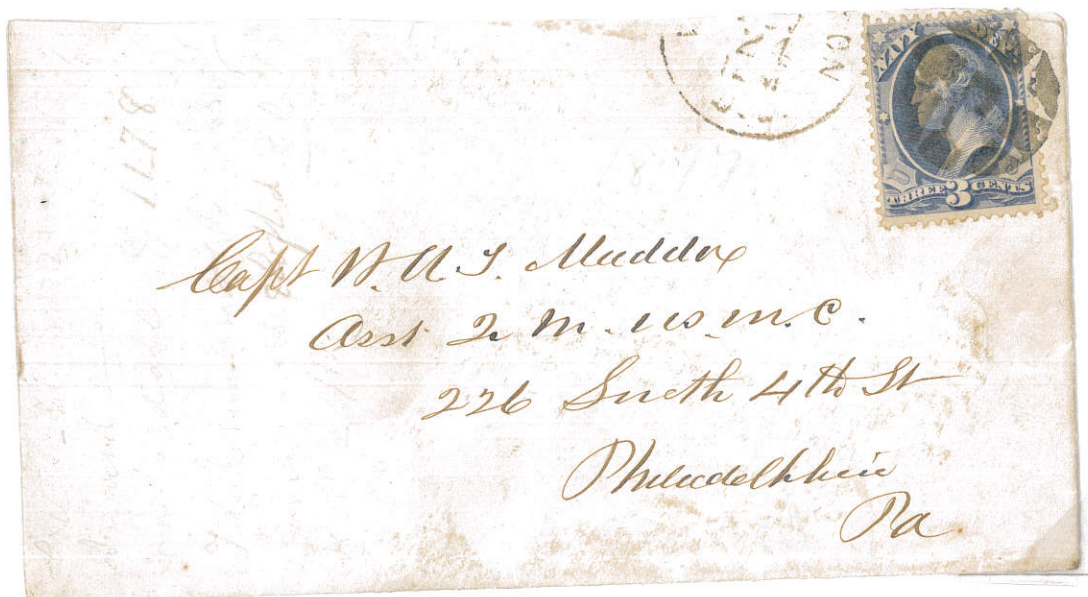 NAVY DEPT.
THREE 3 CENTS
Capt W. A. T. Maddox
Asst Q. M. U.S.M.C.
226 South 4th St
Philadelphia
Pa